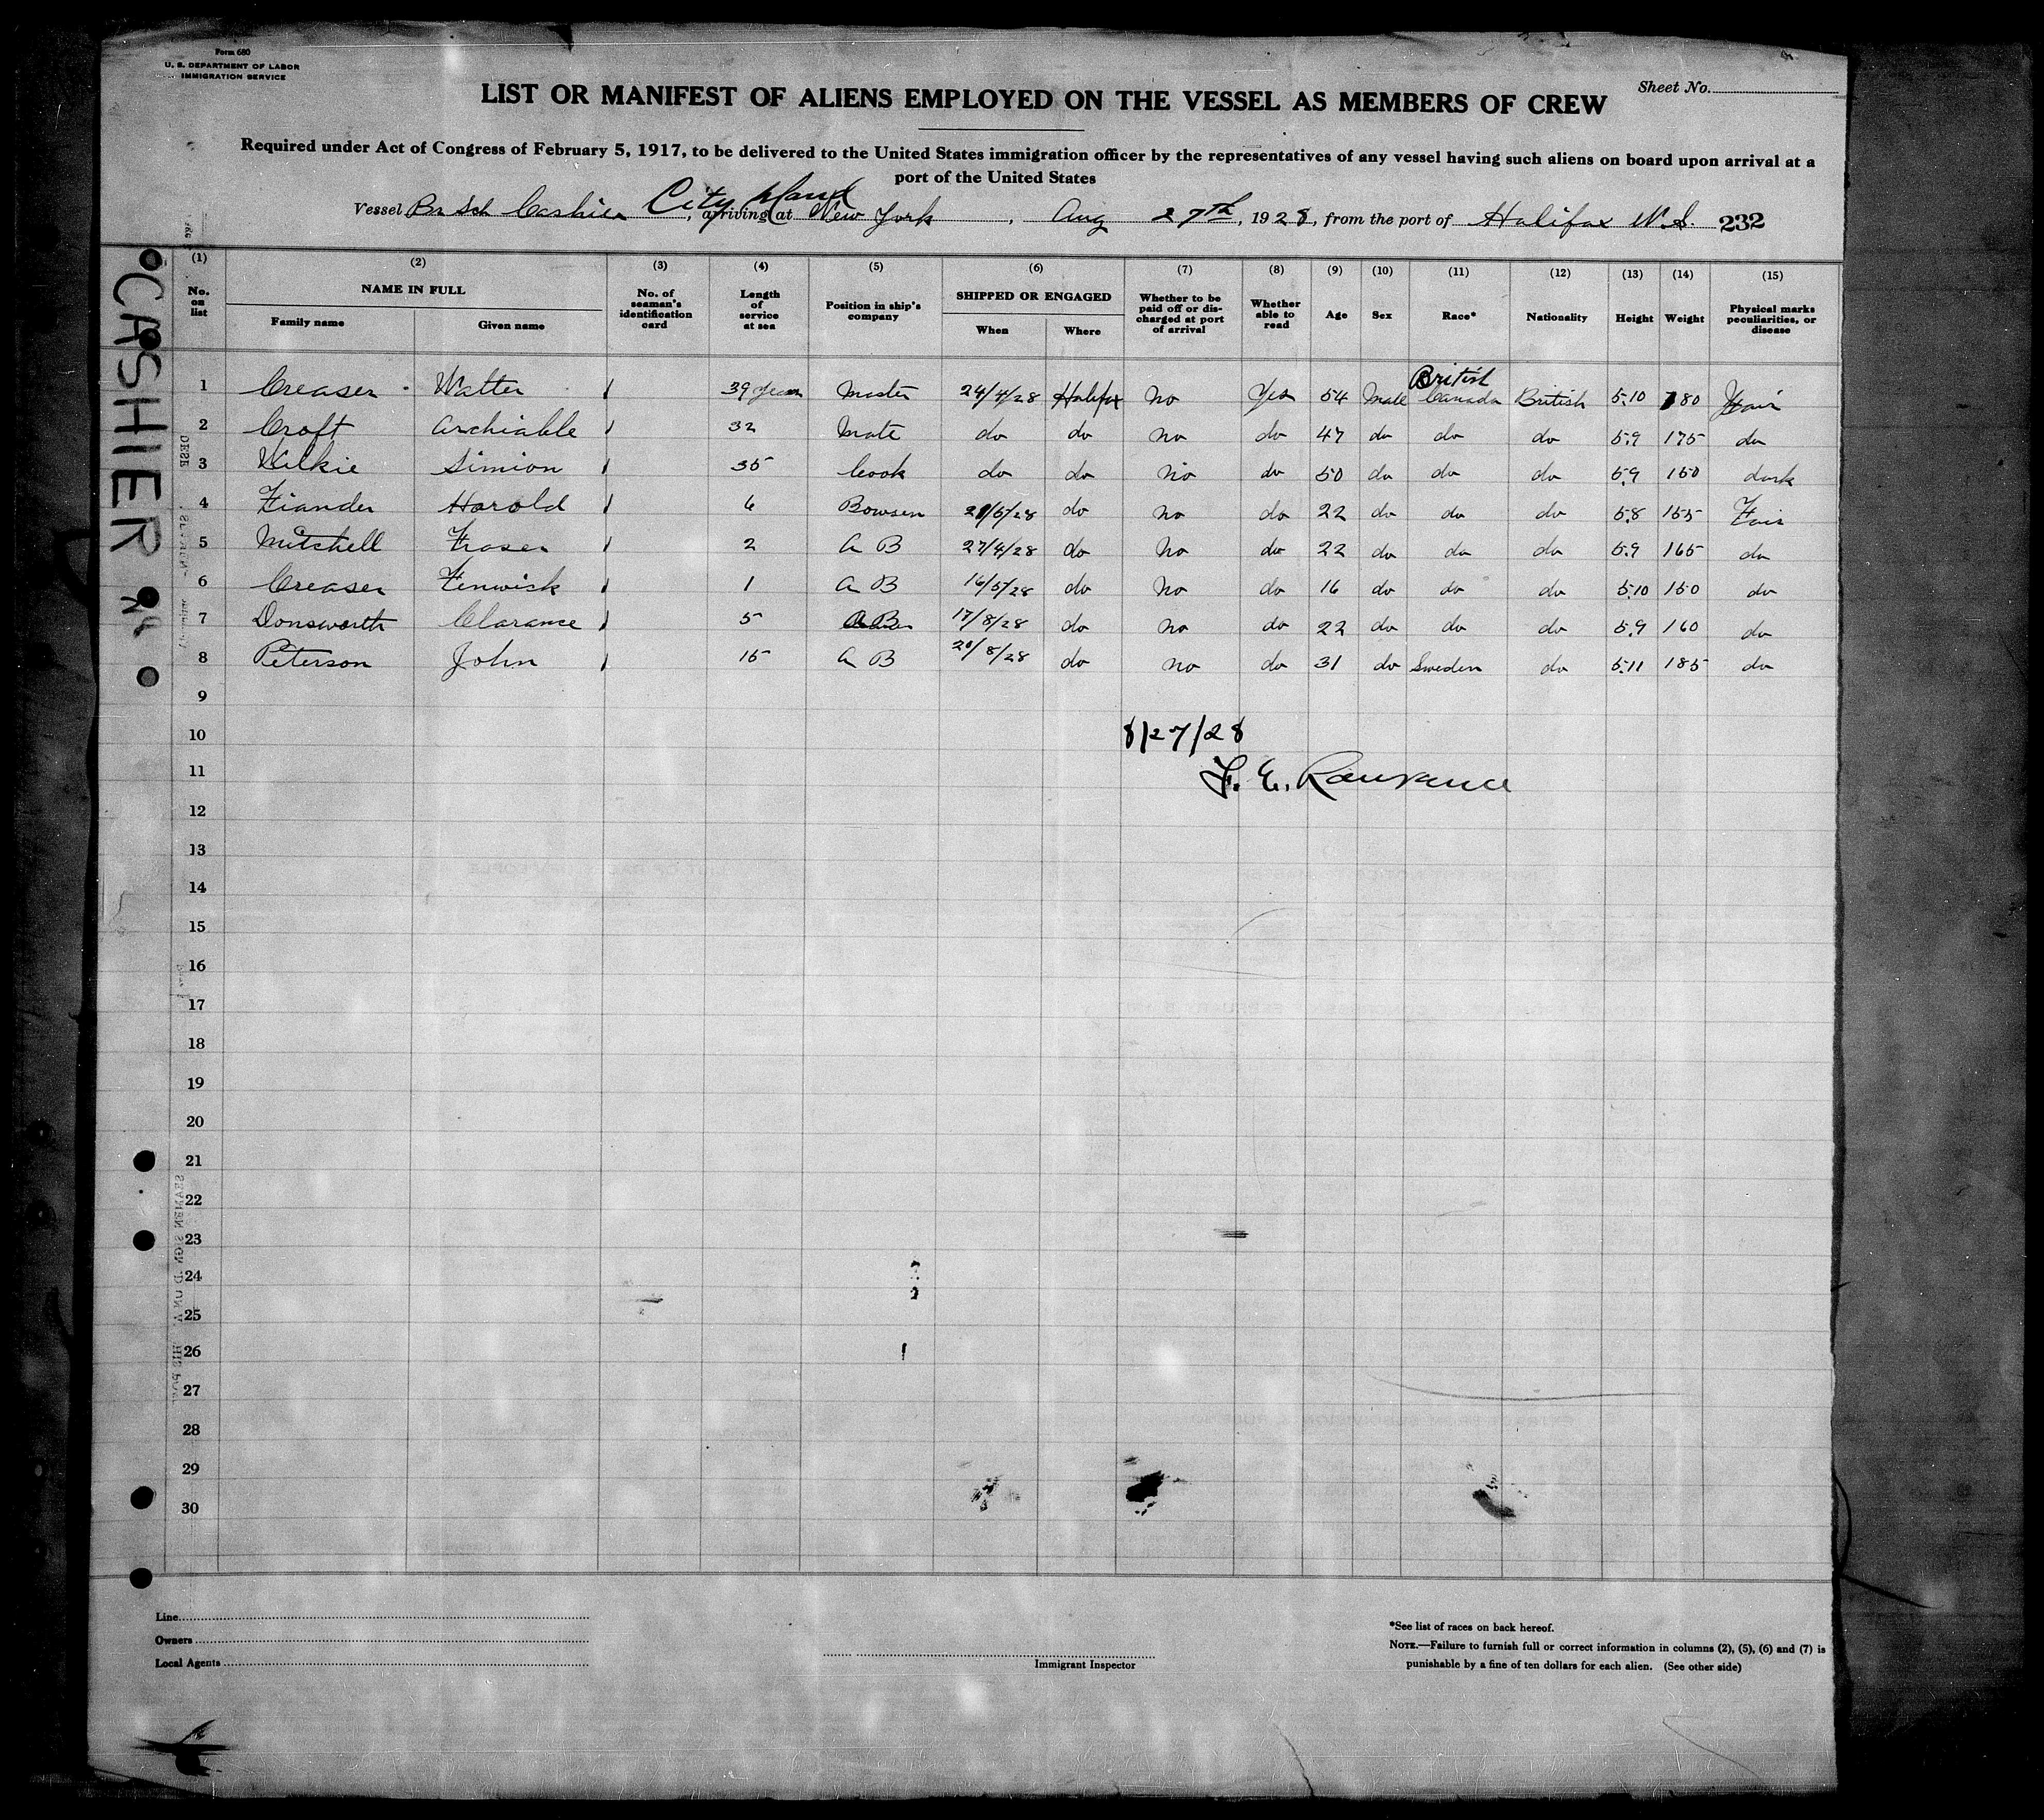 Form 680
U. S. DEPARTMENT OF LABOR
IMMIGRATION SERVICE
Sheet No.
LIST OR MANIFEST OF ALIENS EMPLOYED ON THE VESSEL AS MEMBERS OF CREW
Required under Act of Congress of February 5, 1917, to be delivered to the United States immigration officer by the representatives of any vessel having such aliens on board upon arrival at a
port of the United States
Vessel Br Sch Cashier City Island, arriving at New York, Aug 27th, 1928, from the port of Halifax N.S. 232
CASHIER
(1) (2) (3) (4) (5) (6) (7) (8) (9) (10) (11) (12) (13) (14) (15)
No. on list NAME IN FULL Family name Given name No. of seaman's identification card Length of service at sea Position in ship's company SHIPPED OR ENGAGED When Where Whether to be paid off or discharged at port of arrival Whether able to read Age Sex Race* Nationality Height Weight Physical marks peculiarities, or disease
1 Creaser Walter 39 years Master 24/4/28 Halifax No Yes 54 Male British Canada British 5.10 180 Fair
2 Croft Archiable 32 Mate do do No do 47 do do do 5.9 175 do
3 Wilkie Simion 35 Cook do do No do 50 do do do 5.9 150 dark
4 Fiander Harold 6 Bowsen 21/5/28 do No do 22 do do do 5.8 155 Fair
5 Mitchell Fraser 2 A B 27/4/28 do No do 22 do do do 5.9 165 do
6 Creaser Fenwick 1 A B 16/5/28 do No do 16 do do do 5.10 150 do
7 Donsworth Clarance 5 A B 17/8/28 do No do 22 do do do 5.9 160 do
8 Peterson John 15 A B 20/8/28 do No do 31 do Sweden do 5.11 185 do
9
10
8/27/28
11
F. E.
12
13
14
15
16
17
18
19
20
21
22
23
24
25
26
27
28
29
30
Line
Owners
Local Agents
Immigrant Inspector
*See list of races on back hereof.
NOTE.—Failure to furnish full or correct information in columns (2), (5), (6) and (7) is
punishable by a fine of ten dollars for each alien. (See other side)